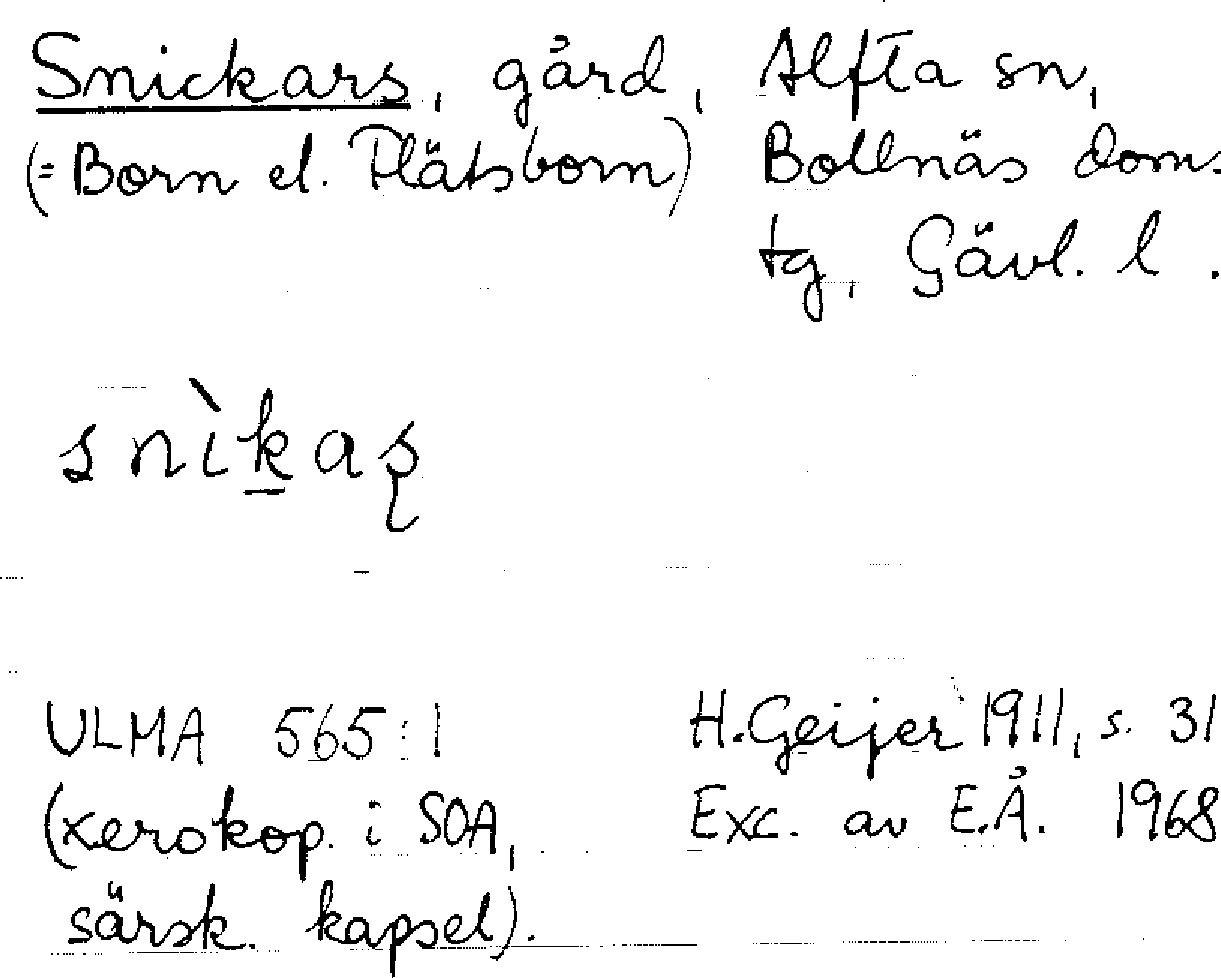 Snickars, gård, Alfta sn,
(= Born el. Plätsborn) Bollnäs dom.
tg, Gävl. l.
snìk̲aş
ULMA 565:1 H. Geijer 1911, s. 31
(xerokop. i SOA, Exc. av E.Å. 1968
särsk. kapsel).